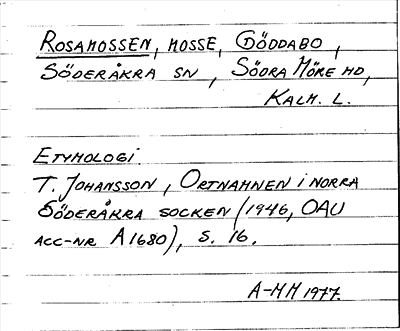 ROSAMOSSEN, MOSSE, GÖDDABO,
SÖDERÅKRA SN, SÖDRA MÖRE HD,
KALM. L.
ETYMOLOGI.
T. JOHANSSON, ORTNAMNEN I NORRA
SÖDERÅKRA SOCKEN (1946, OAU
ACC-NR A1680), S. 16.
A-MH 1977.